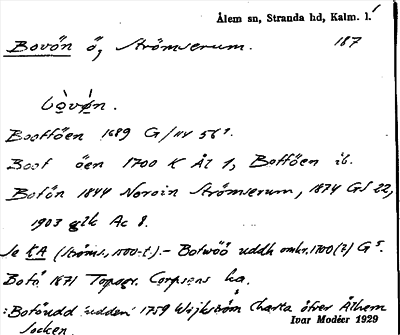 Ålem sn, Stranda hd, Kalm. l.
Bovön ö, Strömserum. 187
bòvǿn.
Bootföen 1689 G/114 56¹.
Boot öen 1700 K Ål 1, Botföen ib.
Botön 1844 Norein Strömserum, 1874 GS 22,
1903 Ac 8.
Se KA (Ströms., 1500-t.).- Botwöö uddh omkr. 1700(?) G⁵.
Botö 1871 Topogr. Corpsens ka.
:Botöudd 'udden' 1759 Wijkström Charta öfver Ålhem
socken.
Ivar Modéer 1929